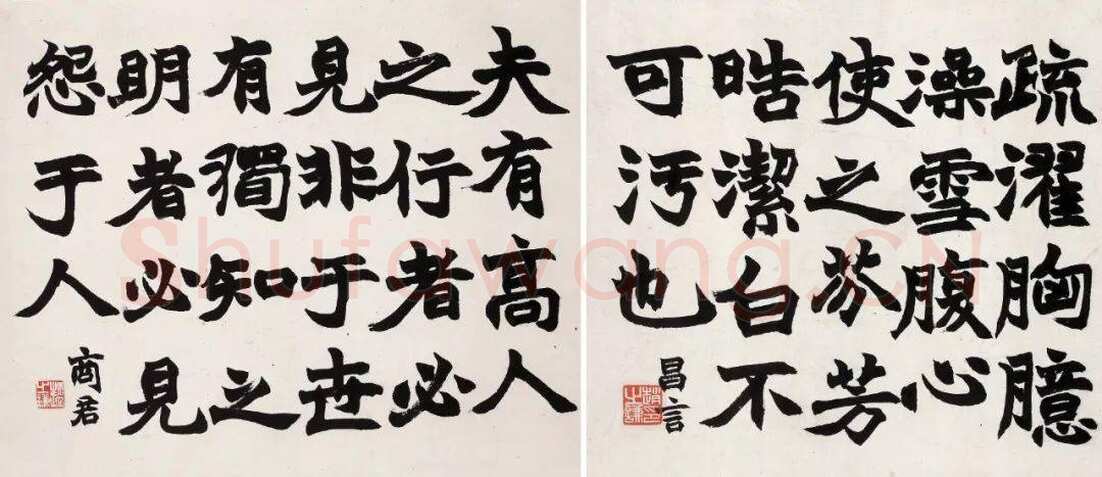 疏濯胸臆
澡雪腹心
使之芬芳
晧潔白不
可污也
昌言
夫有高人
之行者必
見非于世
有獨知之
明者必見
怨于人
商君
Shufawang.CN